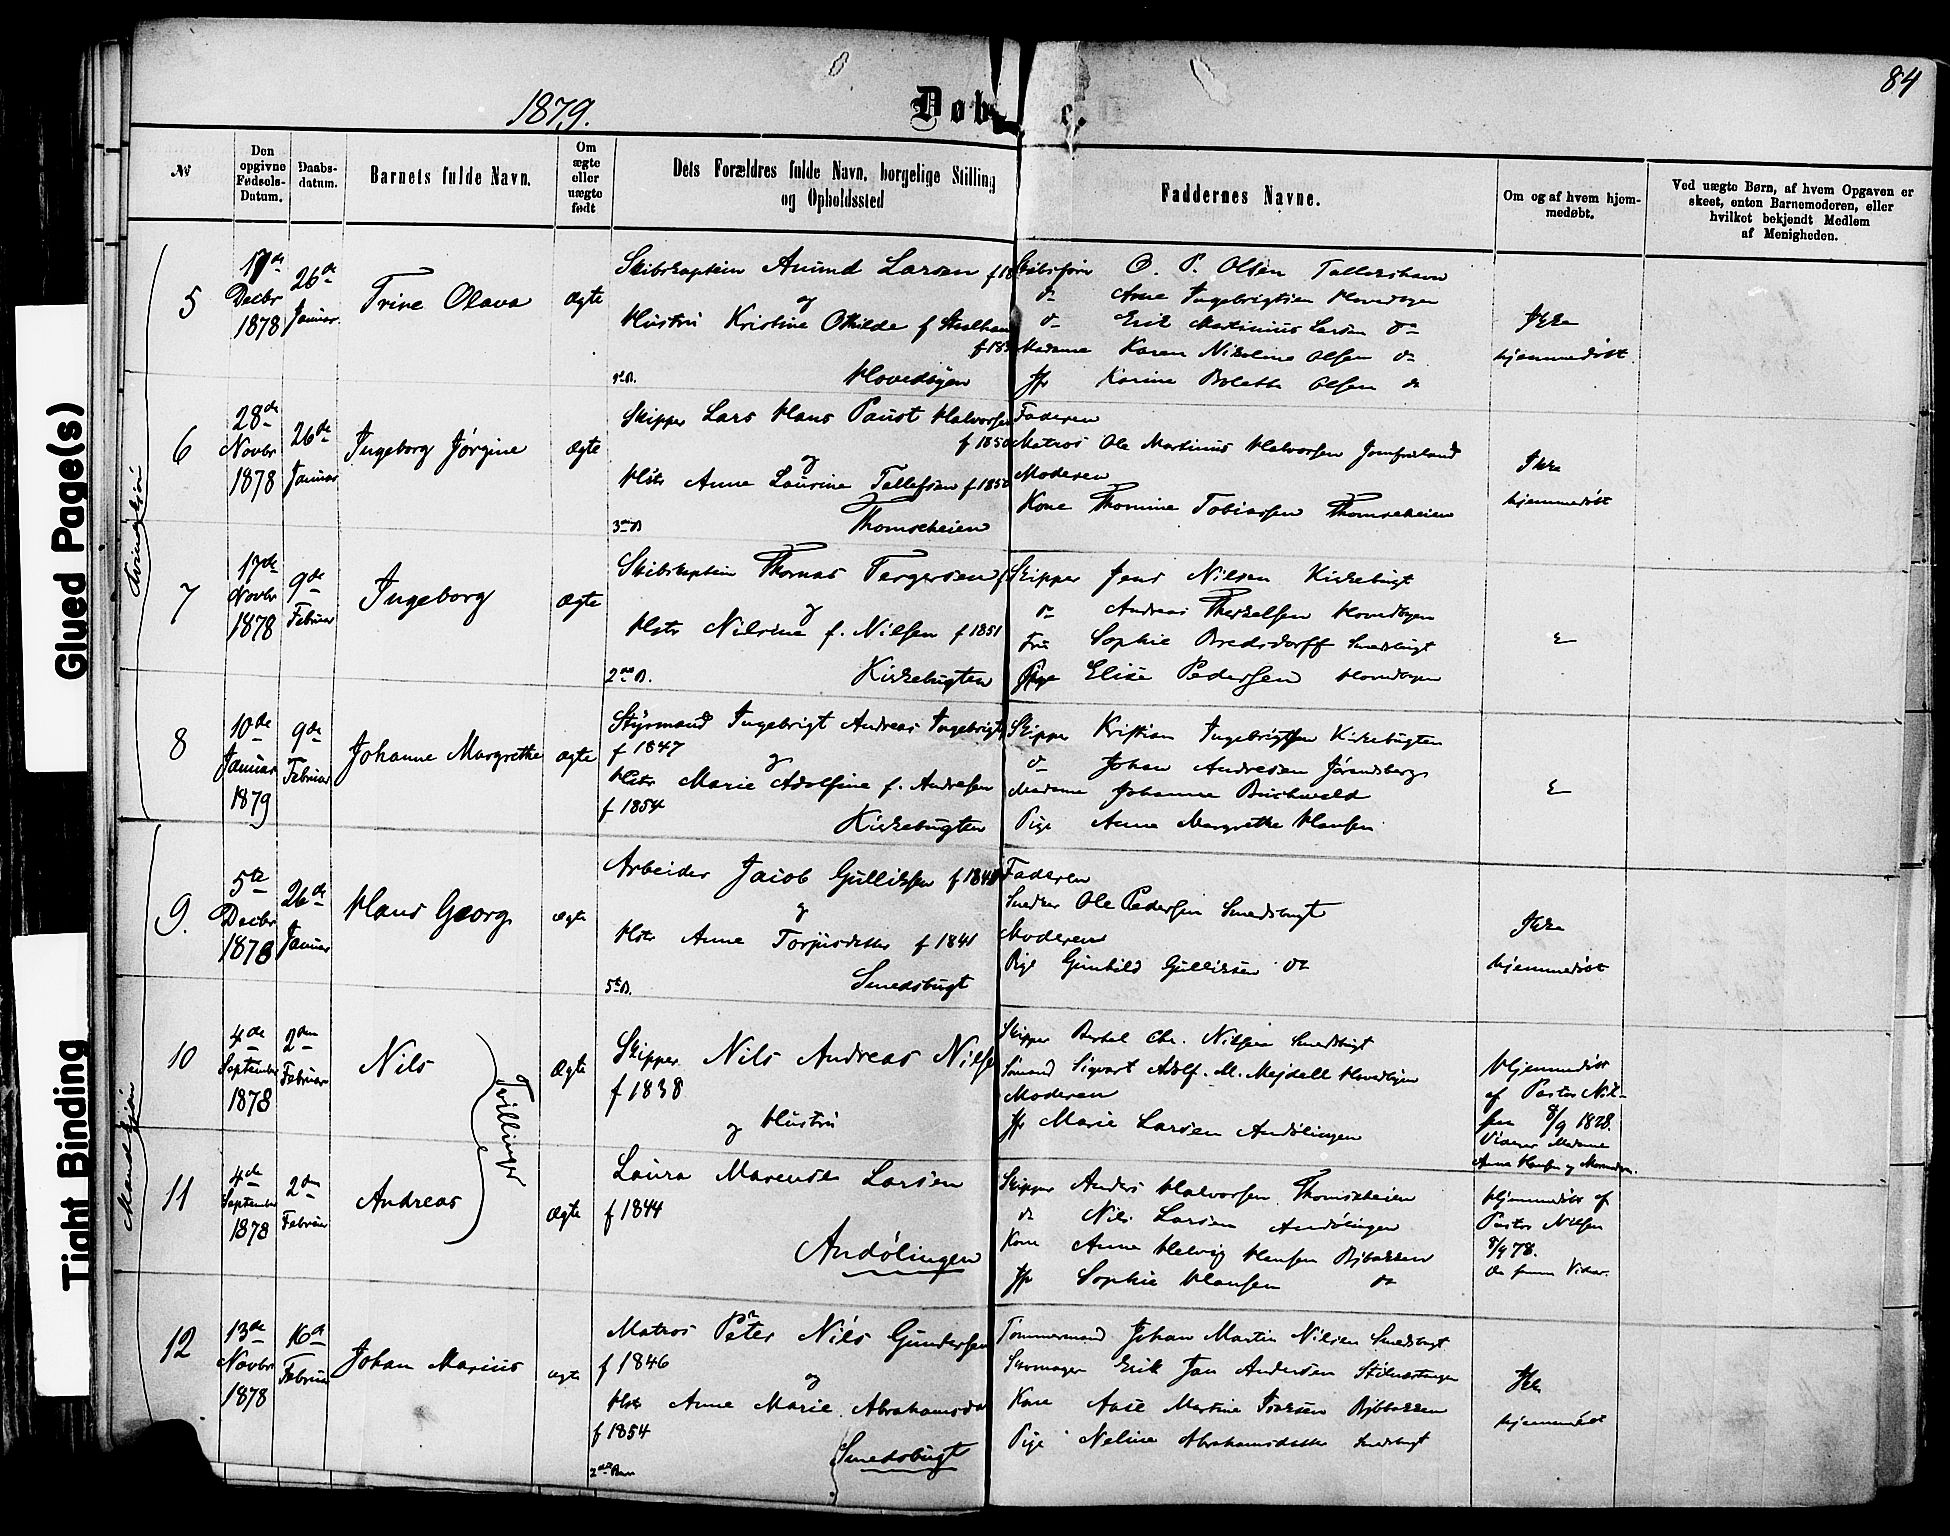 84
1879.
Døbte.
№
Den opgivne Fødsels-Datum.
Daabs-datum.
Barnets fulde Navn.
Om ægte eller uægte født
Dets Forældres fulde Navn, borgelige Stilling og Opholdssted
Faddernes Navne.
Om og af hvem hjemmedøbt.
Ved uægte Børn, af hvem Opgaven er skeet, enten Barnemoderen, eller hvilket bekjendt Medlem af Menigheden.
5
17de Decbr 1878
26de Januar
Trine Olava
Ægte
Skibskaptein Anund Larsen
og
Hustru Kristine Othilde f
Hovedøyen
O. P. Olsen
do Arne Ingebrigtsen Hovedøyen
do Erik Martinius Larsen do
Madame Karen Nikoline Olsen do
Jfr Karine Bolette Olsen do
Ikke
hjemmedøbt
6
28de Novbr 1878
26de Januar
Ingeborg Jørgine
Ægte
Skipper Lars Hans Paust Halvorsen
f 1850
og
Hstr Anne Laurine Tollefsen
3die B
Thomseheien
Faderen
Matros Ole Martinus Halvorsen Jomfruland
Moderen
Kone Thomine Tobiassen Thomseheien
Ikke
hjemmedøbt
7
17de Novbr 1878
9de Februar
Ingeborg
Ægte
Skibskaptein Thomas Tergersen
og
Hstr Nilsine f. Nilsen f 1851
2det B.
Kirkebugten
Skipper Jens Nilsen Kirkebugt
do Andreas Therkelsen Hovedøyen
Fru Sophie Bredsdorff Smedsbugt
Pige Elise Pedersen Hovedøyen
8
10de Januar 1879
9de Februar
Johanne Margrethe
Ægte
Styrmand Ingebrigt Andreas
f 1847
og
Hstr Marie Adolfine f. Andresen
f 1854
Kirkebugten
Skipper Kristian Ingebrigtsen Kirkebugten
do Johan Andresen
Madame Johanne Buchwald
Pige Anne Margrethe Hansen
9.
5te Decbr 1878
26de Januar
Hans Georg
Ægte
Arbeider Jacob Gulliksen
og
Hstr Anne Torjusdatter f 1841
5te B.
Smedsbugt
Faderen
Snedker Ole Pedersen Smedsbugt
Moderen
Pige Gunhild Gulliksen do
Ikke
hjemmedøbt
10
4de September 1878
2den Februar
Nils
Tvillinger
Ægte
Skipper Nils Andreas
f 1838
og Hustru
Skipper Bertel Chr. Nilsen Smedsbugt
Sømand Sigvart Adolf. M. Mejdell Hovedøyen
Moderen
Jfr Marie Larsen Andølingen
Hjemmedøbt
af Pastor Nil-
sen 8/9 1878.
Vidner Madame
Anne Hansen og
11
4de September 1878
2den Februar
Andreas
Ægte
Laura Marende Larsen
f 1844
Andølingen
Skipper Anders Halvorsen Thomseheien
do Nils Larsen Andølingen
Kone Anne Helvig Hansen
Jfr Sophie Hansen do
Hjemmedøbt af
Pastor Nilsen
8/9 78.
12
13de Novbr 1878
16de Februar
Johan Marius
Ægte
Matros Peter Nils Gundersen
f 1846
og
Hstr Anne Marie
f 1854
2det Barn
Smedsbugt
Tømmermand Johan Martin Nilsen Smedsbugt
Skomager Erik Jan Andersen
Kone Aase Martine
Pige Neline Abrahamsdatter Smedsbugt
Ikke
hjemmedøbt
Glued Page(s)
Tight Binding